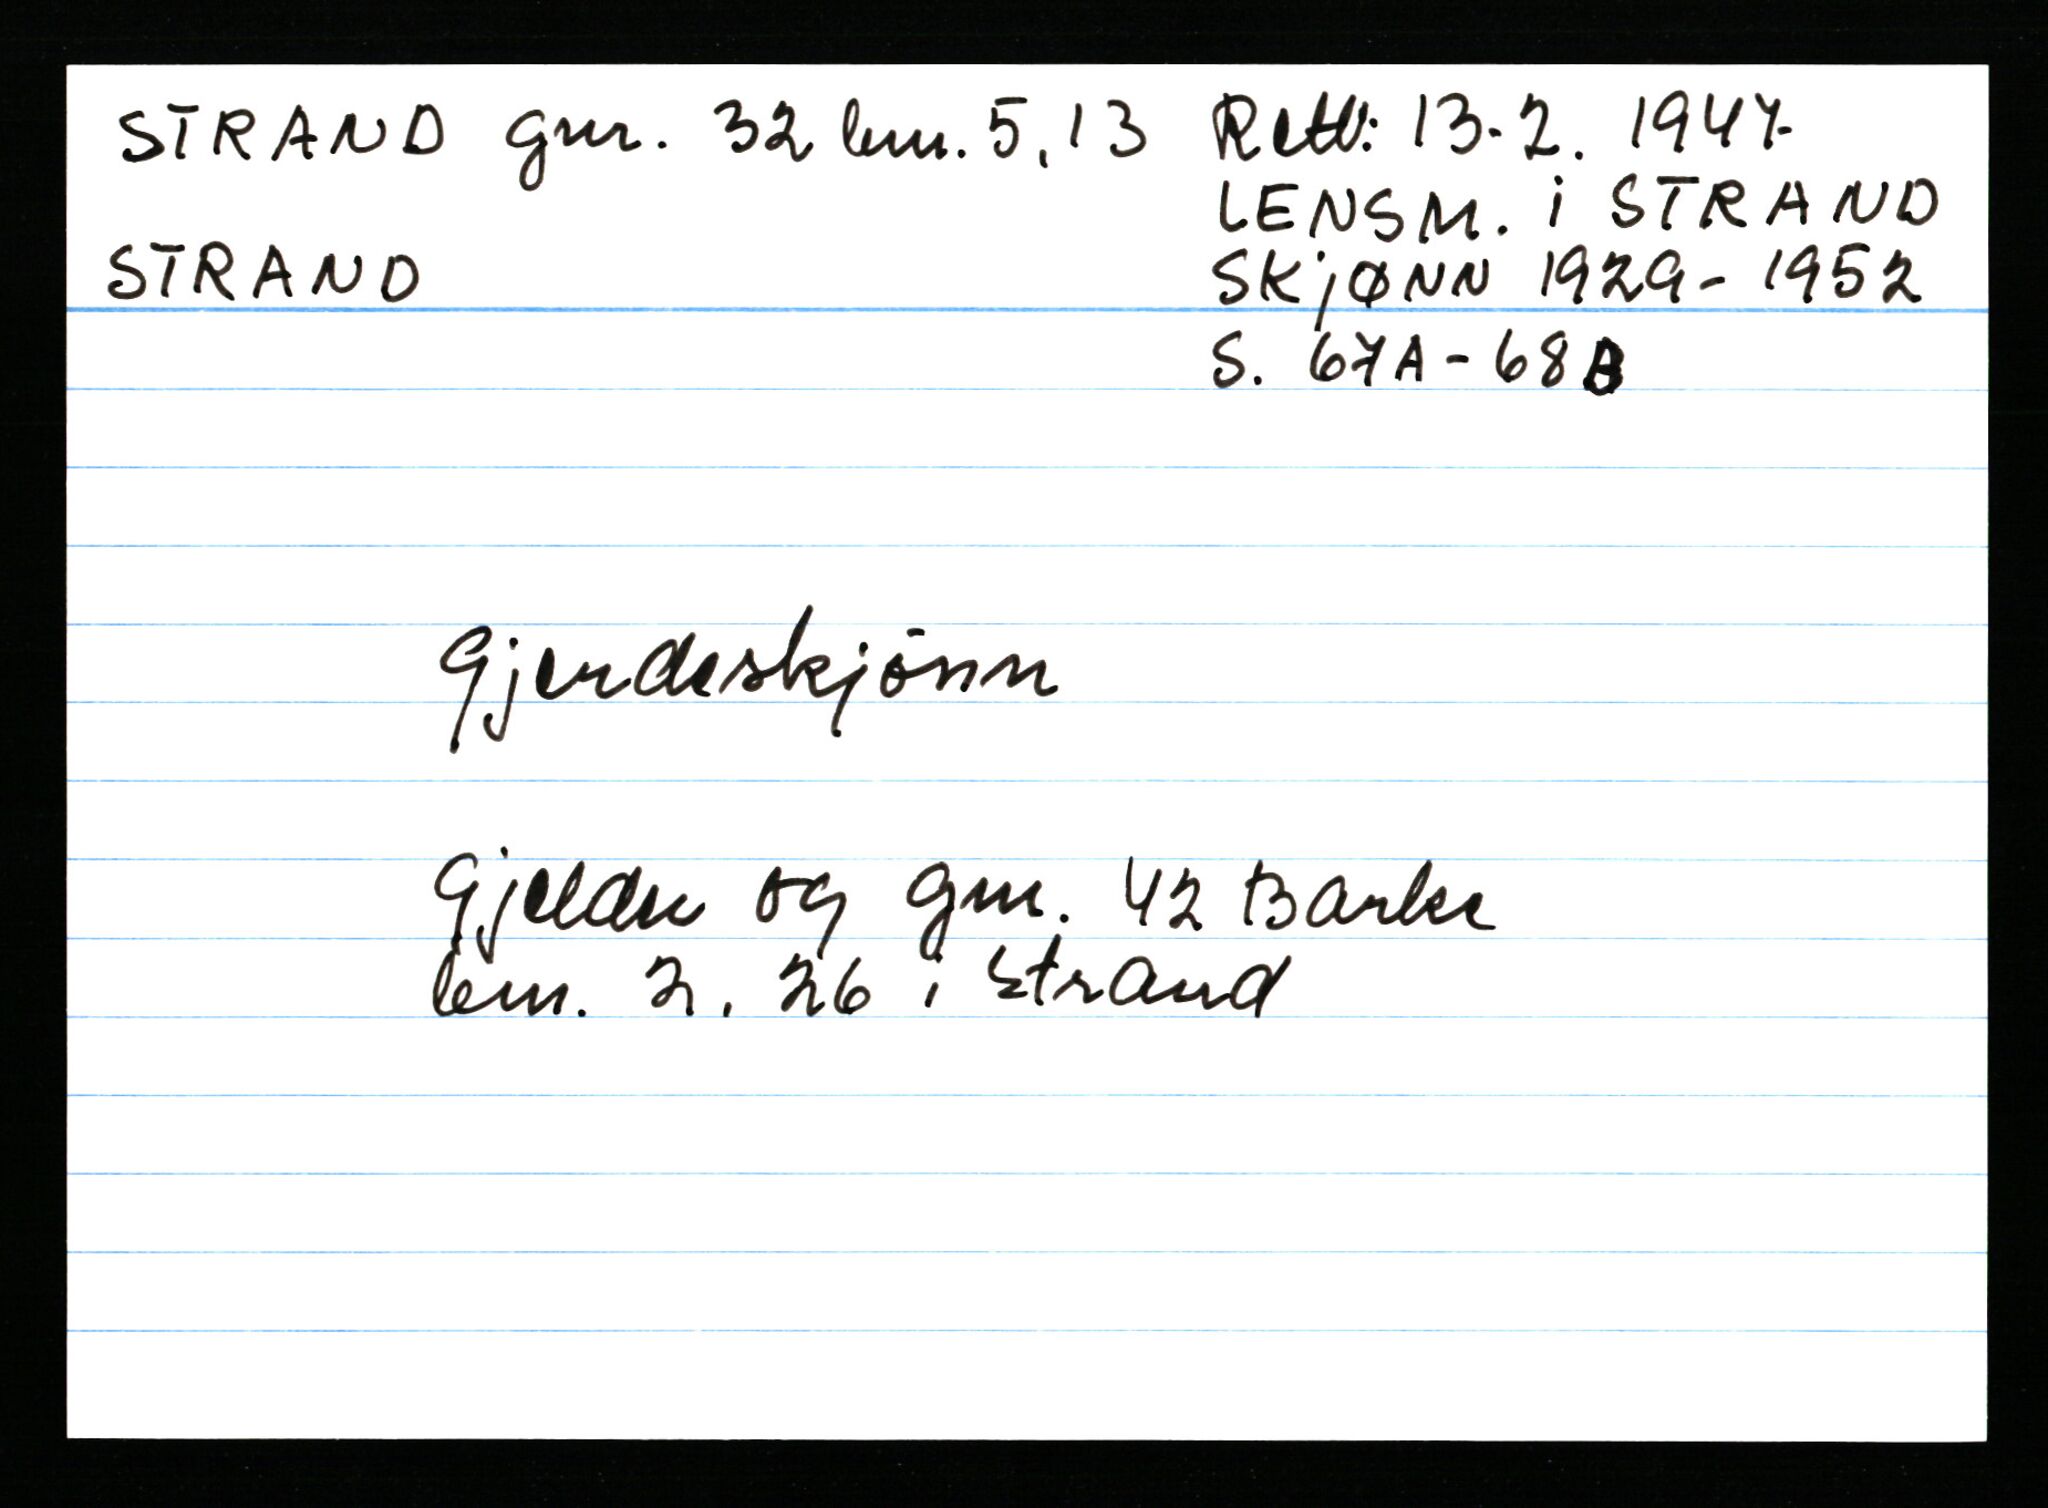 STRAND gnr. 32 bnr. 5, 13 Rettb: 13-2. 1947.
LENSM. i STRAND
STRAND SKJØNN 1929-1952
S. 67A-68B
Gjerdeskjönn
Gjelder og gnr. 42 Barke
bnr. 2, 26 i Strand